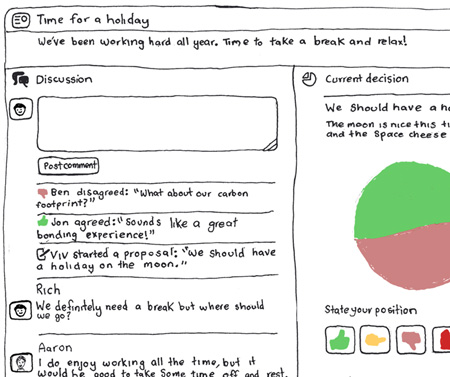 Time for a holiday
We've been working hard all year. Time to take a break and relax!
Discussion
Post comment
Ben disagreed: "What about our carbon
footprint?"
Jon agreed: "Sounds like a great
bonding experience!"
Viv started a proposal: "We should have
a holiday on the moon."
Rich
We definitely need a break but where should
we go?
Aaron
I do enjoy working all the time, but it
would be good to take some time off and rest.
Current decision
We should have a ho
The moon is nice this ti
and the Space cheese
State your position